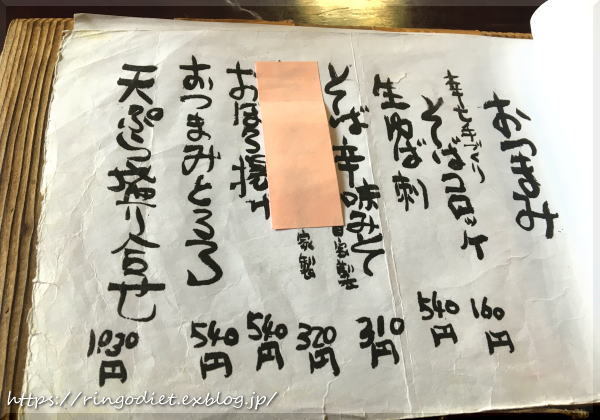 おつまみ
幸七手づくり
そばコロッケ
160円
生ゆば刺
540円
そば辛味みそ
自家製
310円
家製
320円
おぼろ揚げ
540円
おつまみとろろ
540円
天ぷら盛り合せ
1030円
https://ringodiet.exblog.jp/